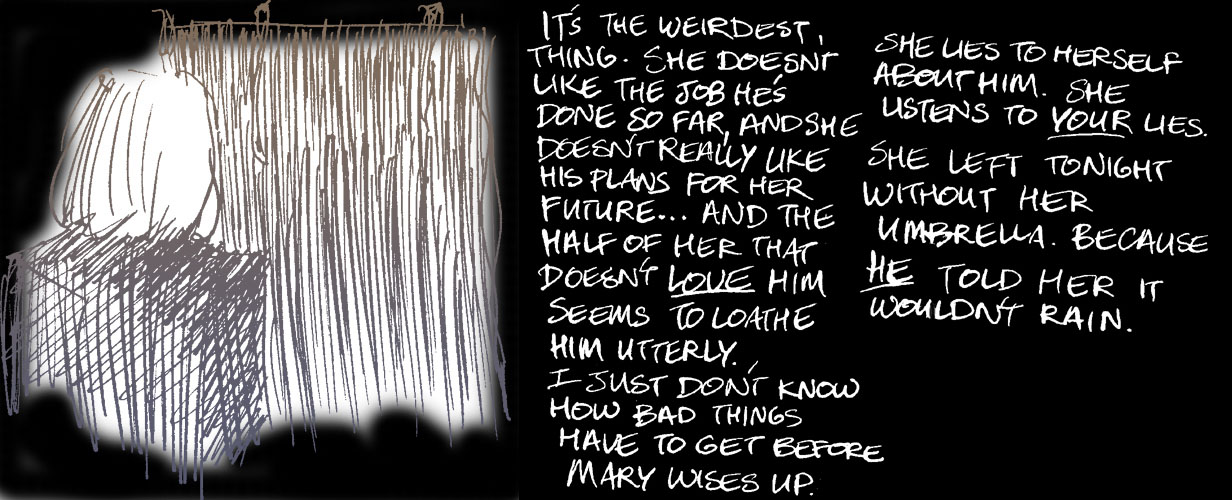 IT'S THE WEIRDEST,
THING. SHE DOESN'T
LIKE THE JOB HE'S
DONE SO FAR, AND SHE
DOESN'T REALLY LIKE
HIS PLANS FOR HER
FUTURE... AND THE
HALF OF HER THAT
DOESN'T LOVE HIM
SEEMS TO LOATHE
HIM UTTERLY.
I JUST DON'T KNOW
HOW BAD THINGS
HAVE TO GET BEFORE
MARY WISES UP.
SHE LIES TO HERSELF
ABOUT HIM. SHE
LISTENS TO YOUR LIES.
SHE LEFT TONIGHT
WITHOUT HER
UMBRELLA. BECAUSE
HE TOLD HER IT
WOULDN'T RAIN.